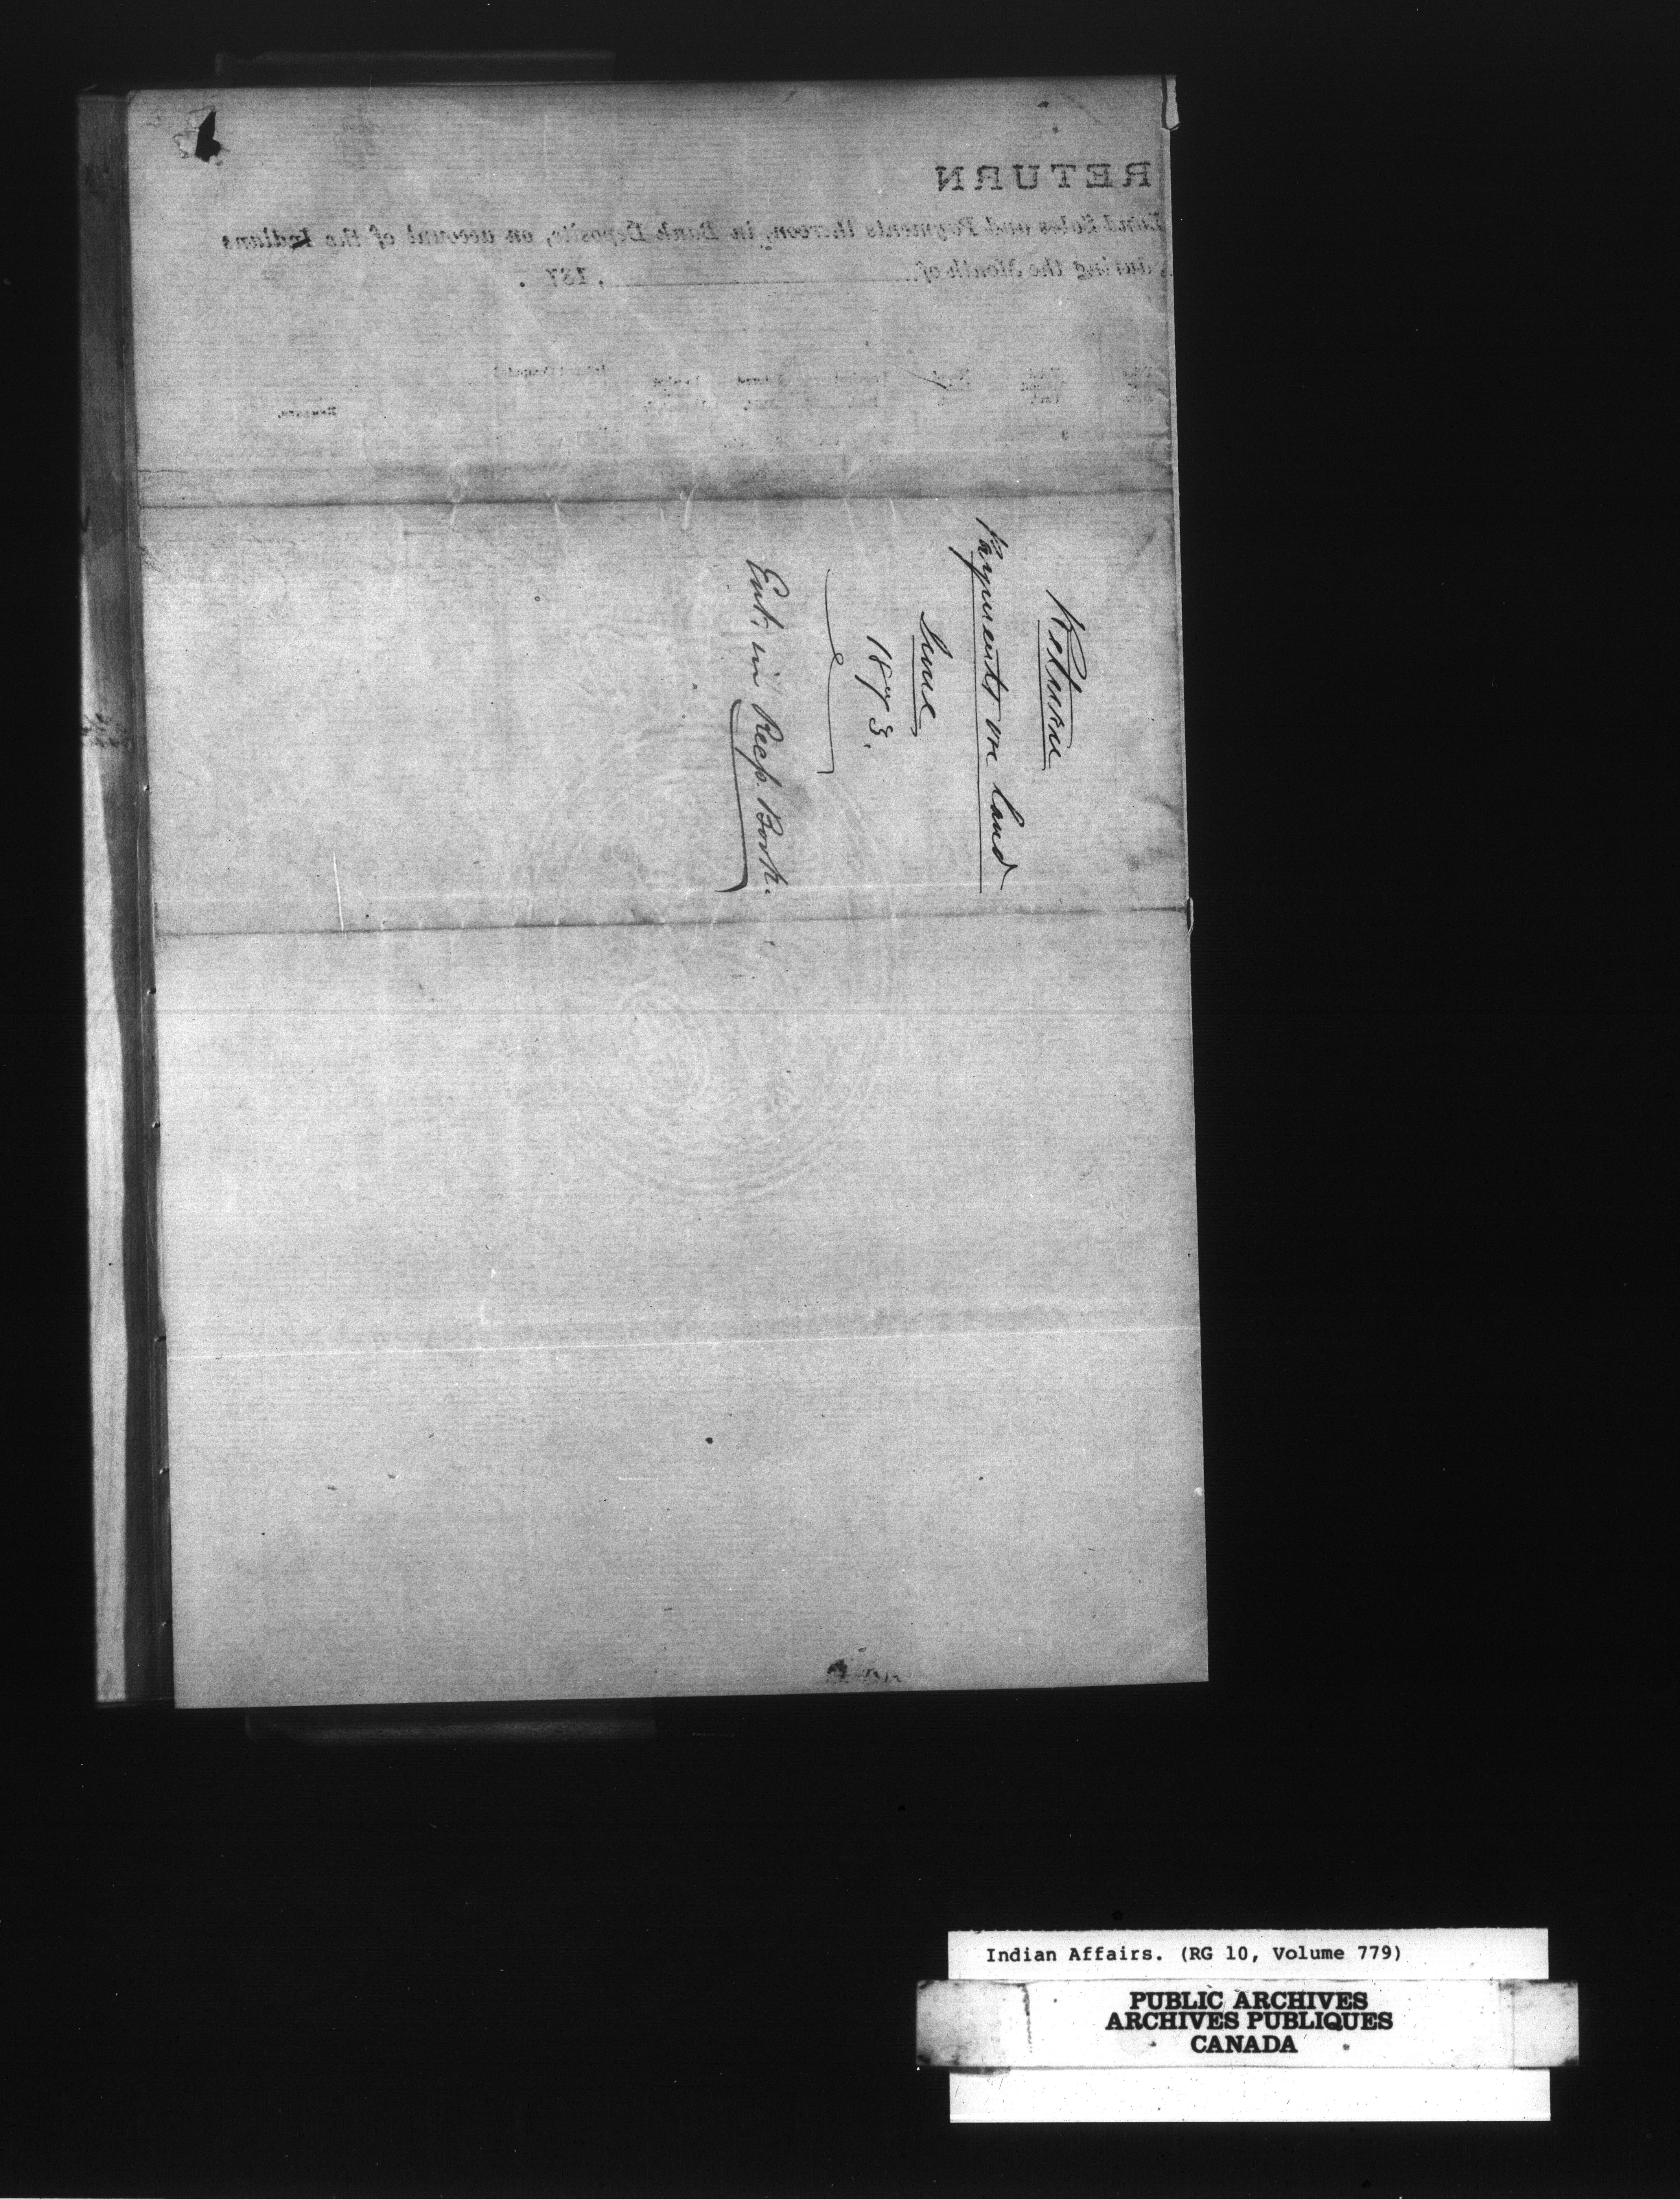 RETURN
Land Sales and Payments thereon, in Bank Deposits, on account of the Indians
during the Month of , 187 .
Remarks.
Return
Payments on land
June
1873.
Ent. in Recp. Book.
Indian Affairs. (RG 10, Volume 779)
PUBLIC ARCHIVES
ARCHIVES PUBLIQUES
CANADA